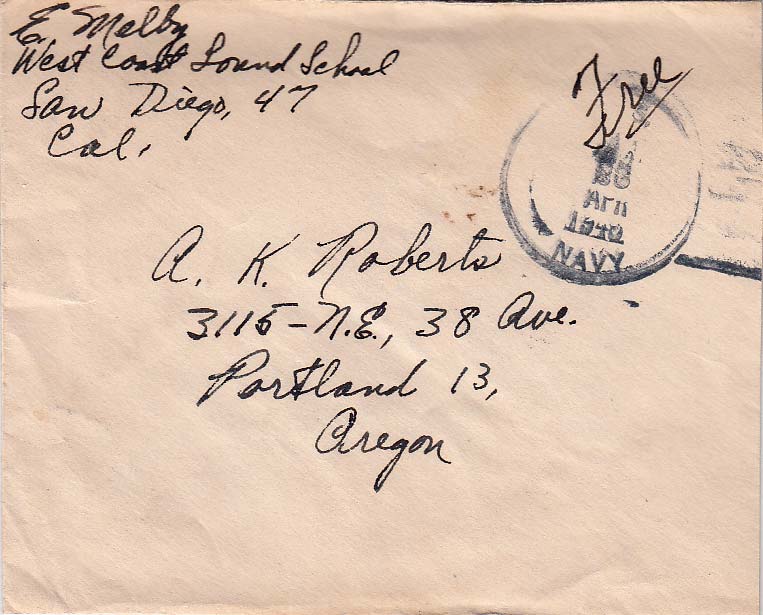 E. Melby
West Coast Sound School
San Diego, 47
Cal.
Free
APR
NAVY
A. K. Roberts
3115-N.E., 38 Ave.
Portland 13,
Oregon